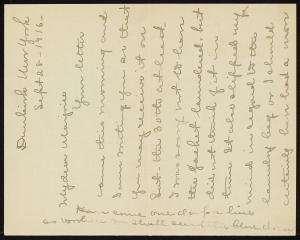 Dunkirk New York
Sept 28 - 1916 -
My dear Marjorie
Your letter
came this morning and
I am writing you so that
you may receive it on
Sat - the 30th at least.
I was sorry not to hear
the jacket laundered, but
did not think of it in
time. It also slipped my
mind in regard to the
laundry bag or I should
certainly have had a
some one drop a line
as we shall send the blue